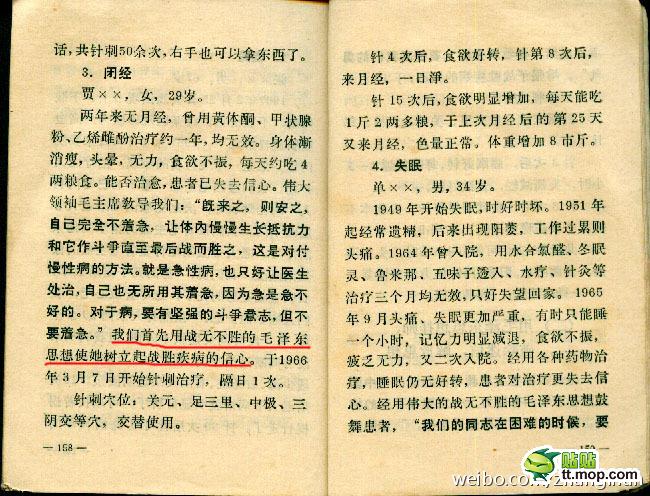 话，共针刺50余次，右手也可以拿东西了。
3．闭经
贾××，女，29岁。
两年来无月经，曾用黄体酮、甲状腺
粉、乙烯雌酚治疗约一年，均无效。身体渐
消瘦，头晕，无力，食欲不振，每天约吃4
两粮食。能否治愈，患者已失去信心。伟大
领袖毛主席教导我们：“既来之，则安之，
自己完全不着急，让体内慢慢生长抵抗力
和它作斗争直至最后战而胜之，这是对付
慢性病的方法。就是急性病，也只好让医生
处治，自己也无所用其着急，因为急是急不
好的。对于病，要有坚强的斗争意志，但不
要着急。”我们首先用战无不胜的毛泽东
思想使她树立起战胜疾病的信心。于1966
年3月7日开始针刺治疗，隔日1次。
针刺穴位：关元、足三里、中极、三
阴交等穴，交替使用。
— 158 —
针4次后，食欲好转，针第8次后，
来月经，一日净。
针15次后，食欲明显增加，每天能吃
1斤2两多粮，于上次月经后的第25天
又来月经，色量正常。体重增加8市斤。
4．失眠
单××，男，34岁。
1949年开始失眠，时好时坏。1951年
起经常遗精，后来出现阳萎，工作过累则
头痛。1964年曾入院，用水合氯醛、冬眠
灵、鲁米那、五味子透入、水疗、针灸等
治疗三个月均无效，只好失望回家。1965
年9月头痛、失眠更加严重，有时只能睡
一个小时，记忆力明显减退，食欲不振，
疲乏无力，又二次入院。经用各种药物治
疗，睡眠仍无好转，患者对治疗更失去信
心。经用伟大的战无不胜的毛泽东思想鼓
舞患者，“我们的同志在困难的时候，要
贴贴
tt.mop.com